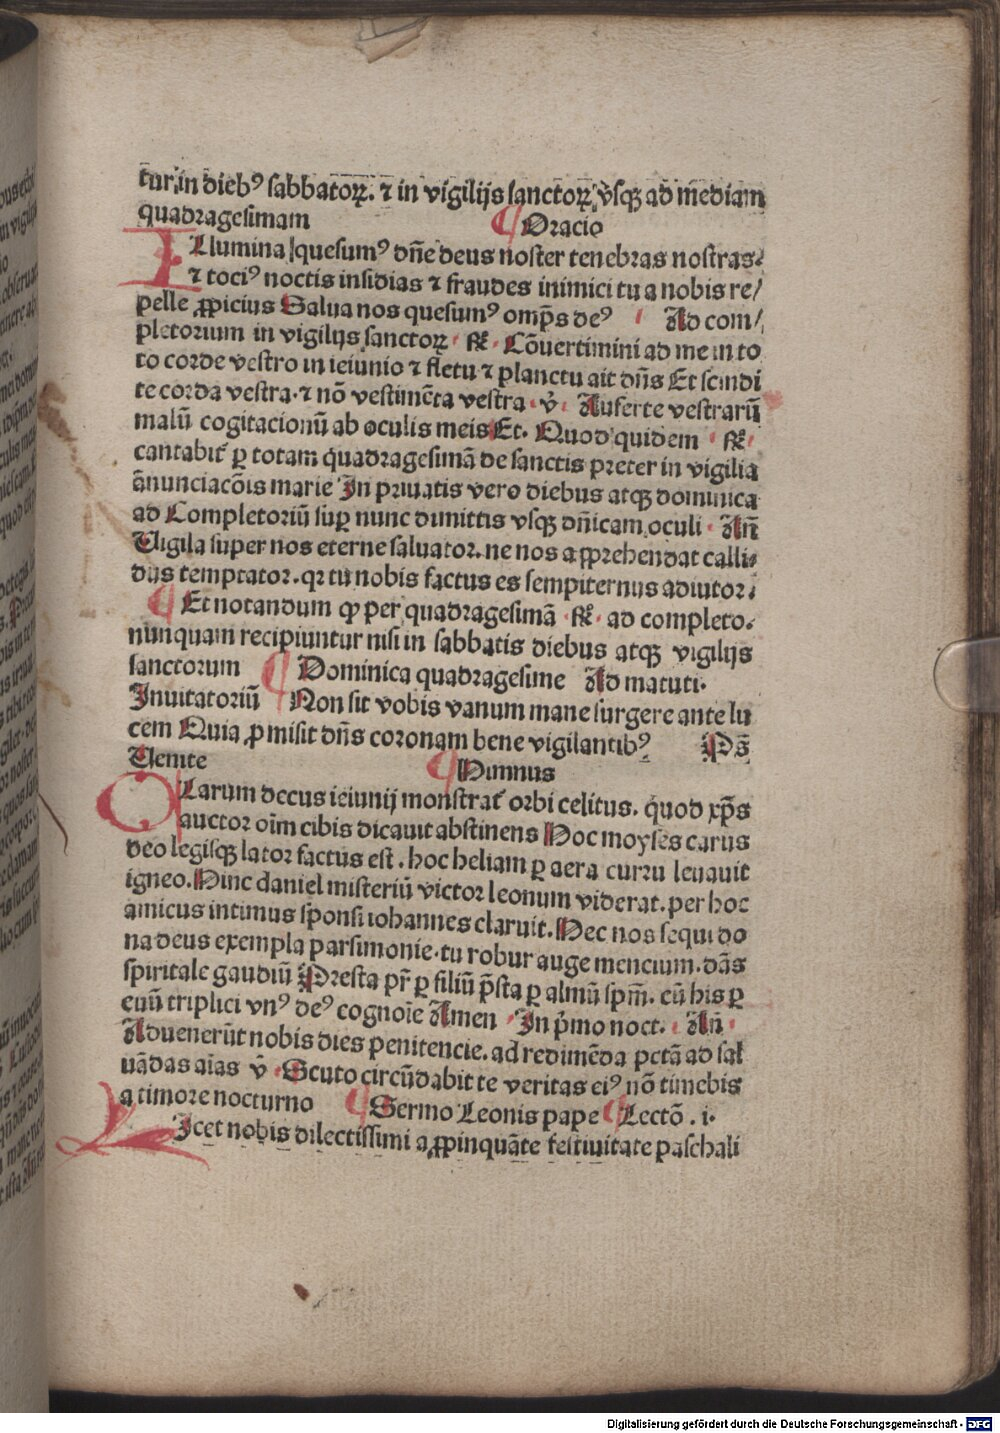 tur, in dieb⁹ sabbatoꝝ. ⁊ in vigilijs sanctoꝝ, vsqꝫ ad mediam
quadragesimam ¶ Oracio
Illumina quesum⁹ dn̄e deus noster tenebras nostras.
⁊ toci⁹ noctis insidias ⁊ fraudes inimici tu a nobis re/
pelle ꝓpicius Salua nos quesum⁹ omp̄s de⁹ Ad com/
pletorium in vigilijs sanctoꝝ R̄ Cōuertimini ad me in to
to corde vestro in ieiunio ⁊ fletu ⁊ planctu ait dn̄s Et scindi
te corda vestra. ⁊ nō vestimēta vestra. v̄. Auferte vestrarū
malū cogitacionū ab oculis meis Et. Quod quidem R̄
cantabit᷑ ꝑ totam quadragesimā de sanctis preter in vigilia
ānunciacōis marie In priuatis vero diebus atqꝫ dominica
ad Completoriū suꝑ nunc dimittis vsqꝫ dn̄icam oculi. An̄
Uigila super nos eterne saluator. ne nos aꝓrehendat calli
dus temptator. qꝛ tu nobis factus es sempiternus adiutor.
¶ Et notandum ꝙ per quadragesimā R̄ ad completo.
nunquam recipiuntur nisi in sabbatis diebus atqꝫ vigilijs
sanctorum ¶ Dominica quadragesime Ad matuti.
Inuitatoriū Non sit vobis vanum mane surgere ante lu
cem Quia ꝓmisit dn̄s coronam bene vigilantib⁹ Ps̄
Uenite ¶ Himnus
Clarum decus ieiunij monstrat᷑ orbi celitus. quod xp̄s
auctor oīm cibis dicauit abstinens Hoc moyses carus
deo legisqꝫ lator factus est. hoc heliam ꝑ aera curru leuauit
igneo. Hinc daniel misteriū victor leonum viderat. per hoc
amicus intimus sponsi iohannes claruit. Hec nos sequi do
na deus exempla parsimonie. tu robur auge mencium. dās
spiritale gaudiū Presta pr̄ ꝑ filiū p̄sta ꝑ almū spm̄. cū his ꝑ
euū triplici vn⁹ de⁹ cognoīe Amen In p̄mo noct. An̄
Aduenerūt nobis dies penitencie. ad redimēda pctā ad sal
uādas aīas v̄ Scuto circūdabit te veritas ei⁹ nō timebis
a timore nocturno ¶ Sermo Leonis pape ¶ Lectō. i.
Licet nobis dilectissimi aꝓpinquāte festiuitate paschali
Digitalisierung gefördert durch die Deutsche Forschungsgemeinschaft - DFG